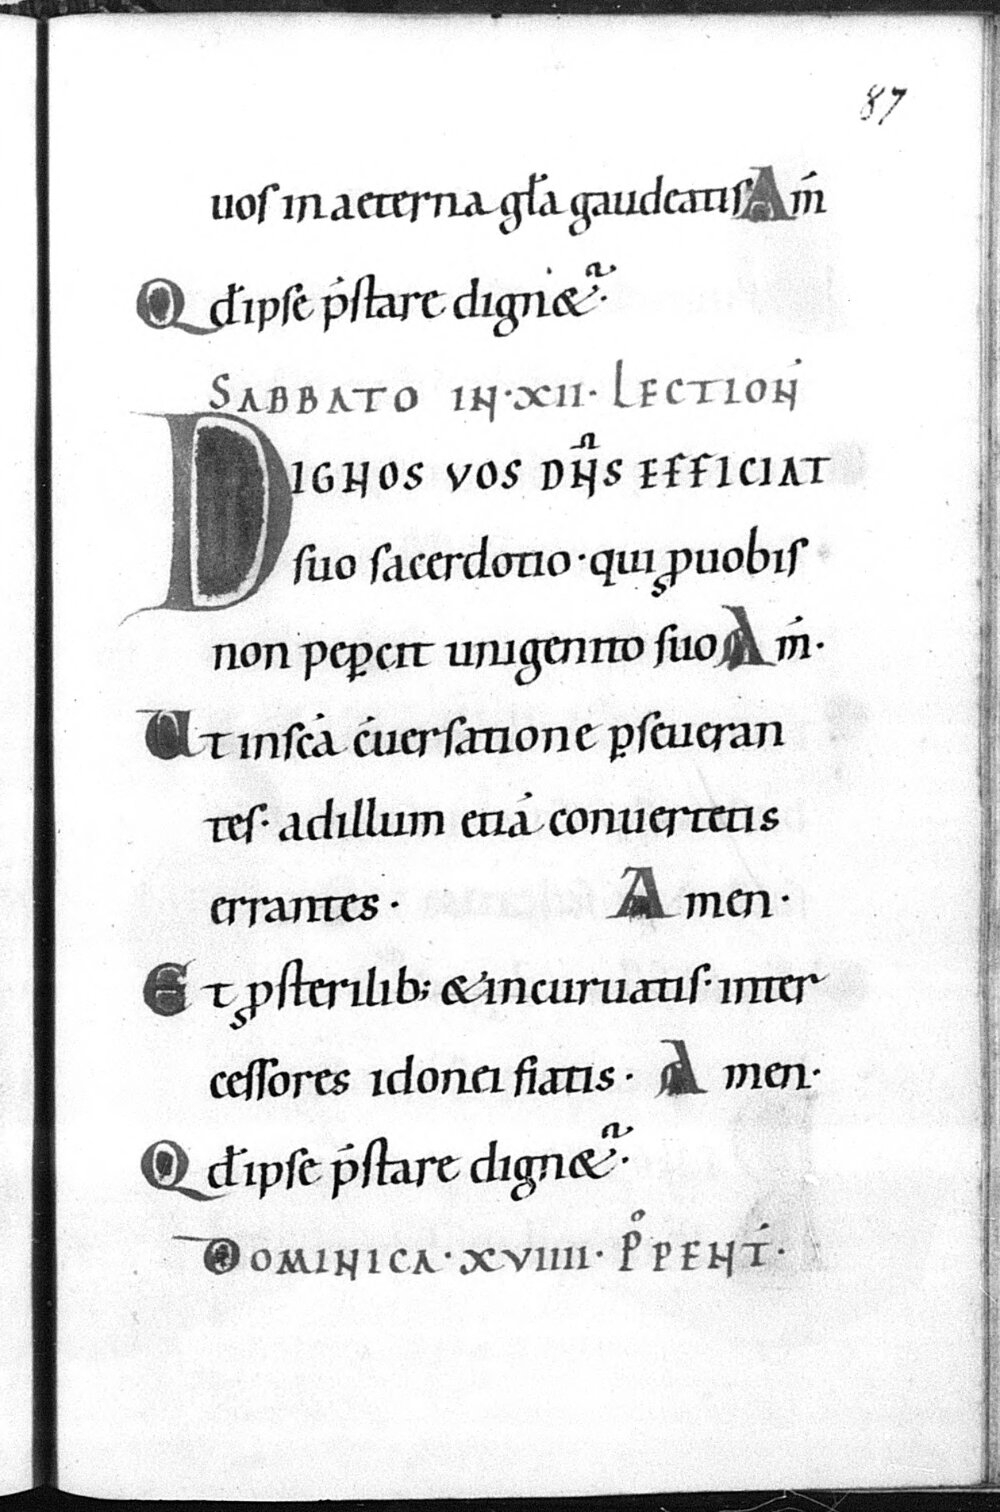 87
uos in aeterna gła gaudeatis Am̄
Q đ ipse p̄stare dign&ᷓ·
SABBATO IN·XII· LECTIOŃ
DIGNOS VOS DN̄S EFFICIAT
suo sacerdotio· qui ꝓ uobis
non peꝑcit unigenito suo Am̄·
Ut in sc̄a c̄uersatione ꝑseueran
tes· ad illum etiā conuertetis
errantes· Amen·
Et ꝓ sterilib; & incuruatis· inter
cessores idonei fiatis· Amen·
Q đ ipse p̄stare dign&ᷓ·
DOMINICA·XVIIII· P̊ PENT́·